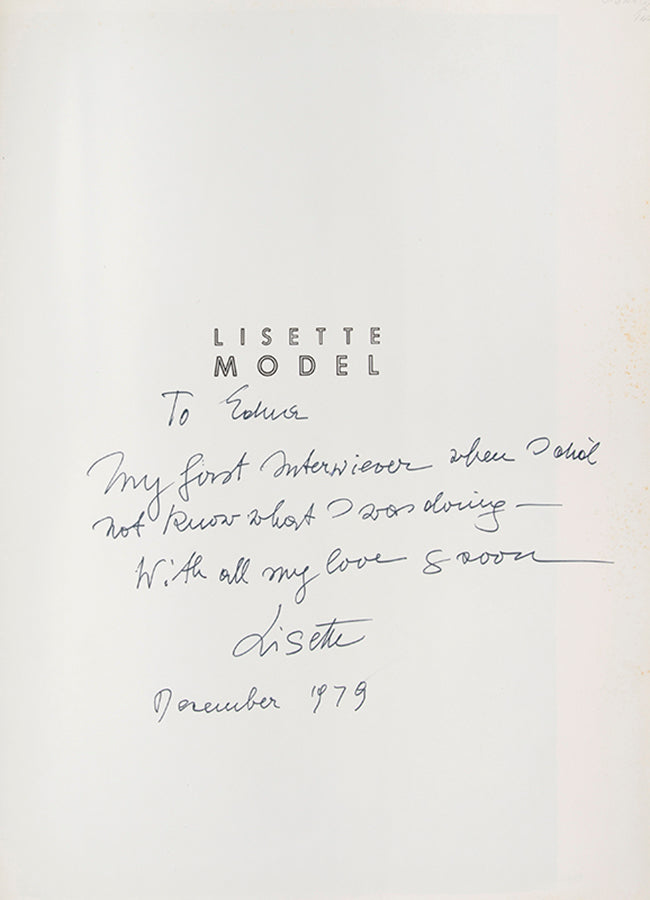 LISETTE
MODEL
To Edna
My first Interwiever when I did
not know what I was doing —
With all my love
Lisette
December 1979